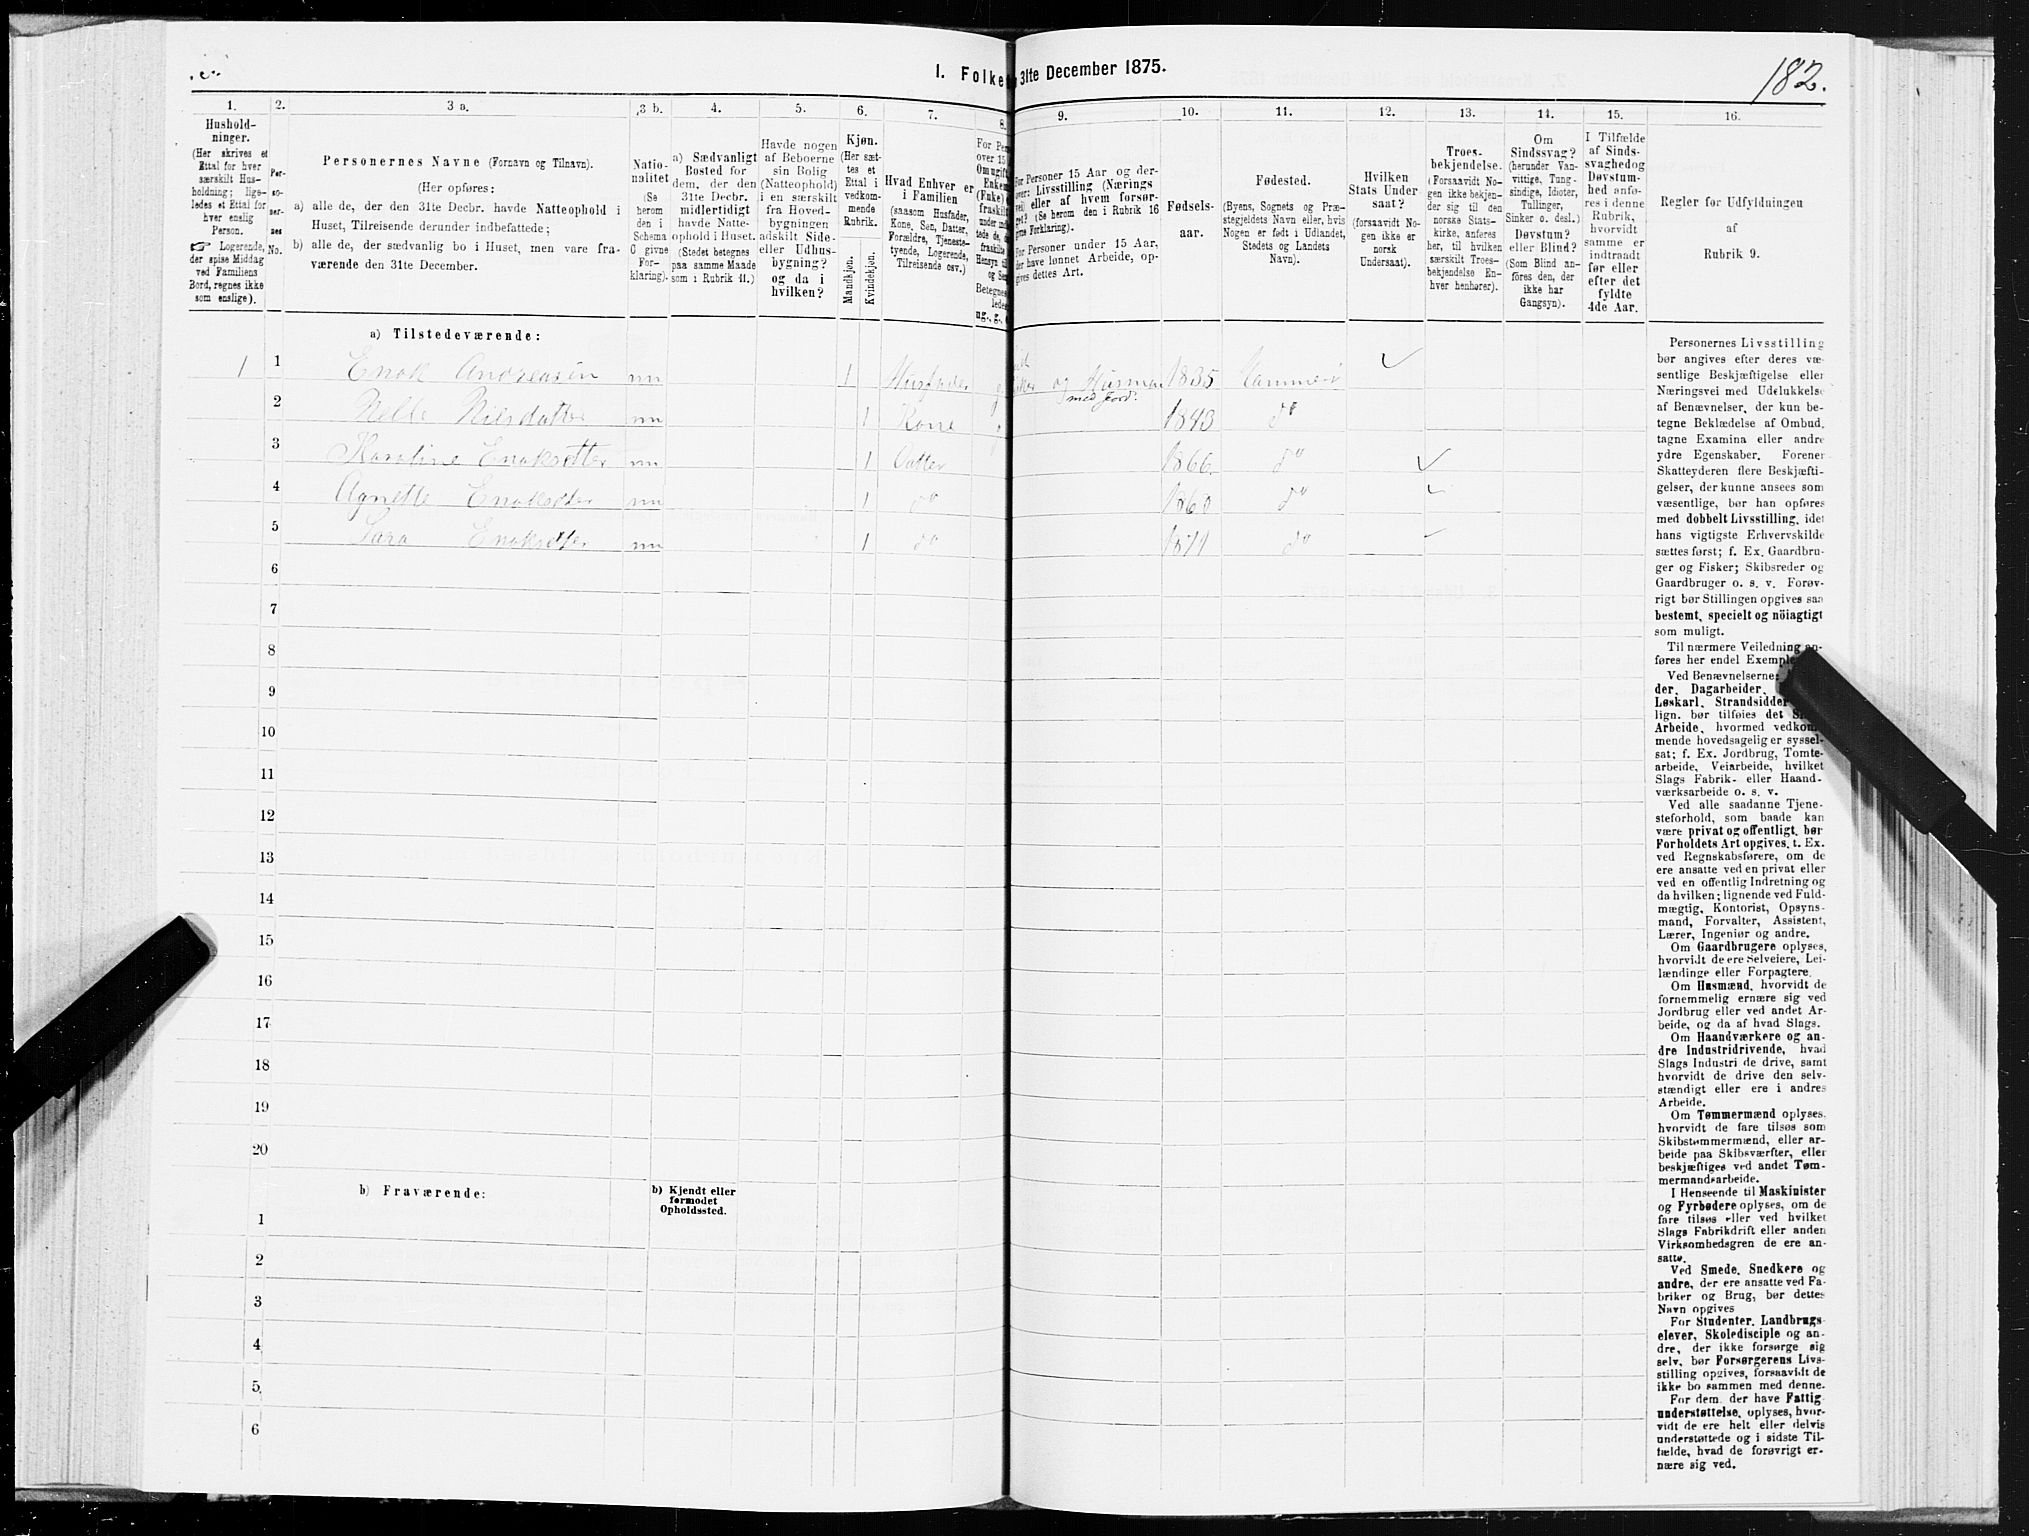 I. Folke 31te December 1875.
182.
1. 2. 3 a. 3 b. 4. 5. 6. 7. 8. 9. 10. 11. 12. 13. 14. 15. 16.
Hushold-
ninger.
(Her skrives et
Ettal for hver
særskilt Hus-
holdning; lige-
ledes et Ettal for
hver enslig
Person.
☞ Logerende,
der spise Middag
ved Familiens
Bord, regnes ikke
som enslige).
Per-
so-
ner-
nes
No.
Personernes Navne (Fornavn og Tilnavn).
(Her opføres:
a) alle de, der den 31te Decbr. havde Natteophold i
Huset, Tilreisende derunder indbefattede;
b) alle de, der sædvanlig bo i Huset, men vare fra-
værende den 31te December.
Natio-
nalitet
(Se
herom
den i
Schema
C givne
For-
klaring).
a) Sædvanligt
Bosted for
dem, der den
31te Decbr.
midlertidigt
havde Natte-
ophold i Huset.
(Stedet betegnes
paa samme Maade
som i Rubrik 11.)
Havde nogen
af Beboerne
sin Bolig
(Natteophold)
i en særskilt
fra Hoved-
bygningen
adskilt Side-
eller Udhus-
bygning?
og da i
hvilken?
Kjøn.
(Her sæt-
tes et
Ettal i
vedkom-
mende
Rubrik.
Mandkjøn.
Kvindekjøn.
Hvad Enhver er
i Familien
(saasom Husfader,
Kone, Søn, Datter,
Forældre, Tjeneste-
tyende, Logerende,
Tilreisende osv.)
For Personer 15 Aar og der-
over: Livsstilling (Nærings
vei) eller af hvem forsør-
get? (Se herom den i Rubrik 16
givne Forklaring).
For Personer under 15 Aar,
der have lønnet Arbeide, op-
gives dettes Art.
Fødsels-
aar.
Fødested.
(Byens, Sognets og Præ-
stegjeldets Navn eller, hvis
Nogen er født i Udlandet,
Stedets og Landets
Navn).
Hvilken
Stats Under-
saat?
(forsaavidt No-
gen ikke er
norsk
Undersaat).
Troes-
bekjendelse.
(Forsaavidt No-
gen ikke bekjen-
der sig til den
norske Stats-
kirke, anføres
her, til hvilken
særskilt Troes-
bekjendelse En-
hver henhører).
Om
Sindssvag?
(herunder Van-
vittige, Tung-
sindige, Idioter,
Tullinger,
Sinker o. desl.)
Døvstum?
eller Blind?
(Som Blind an-
føres den, der
ikke har
Gangsyn).
I Tilfælde
af Sinds-
svaghed og
Døvstum-
hed anfø-
res i denne
Rubrik,
hvorvidt
samme er
indtraadt
før eller
efter det
fyldte
4de Aar.
Regler for Udfyldningen
af
Rubrik 9.
a) Tilstedeværende:
1 1 Enok Andreasen nn 1 Husfader g og Husmand med Jord. 1835
2 Nille Nilsdatter nn 1 Kone g 1843 do
3 Karoline Enoksdtter nn 1 Datter 1866. do
4 Agnette Enoksdter nn 1 do 1868 do
5 Sara Enoksdtter nn 1 do 1871 do
6
7
8
9
10
11
12
13
14
15
16
17
18
19
20
b) Fraværende:
b) Kjendt eller
formodet
Opholdssted.
1
2
3
4
5
6
Personernes Livsstilling
bør angives efter deres væ-
sentlige Beskjæftigelse eller
Næringsvei med Udelukkelse
af Benævnelser, der kun be-
tegne Beklædelse af Ombud,
tagne Examina eller andre
ydre Egenskaber. Forener
Skatteyderen flere Beskjæfti-
gelser, der kunne ansees som
væsentlige, bør han opføres
med dobbelt Livsstilling, idet
hans vigtigste Erhvervskilde
sættes først; f. Ex. Gaardbru-
ger og Fisker; Skibsreder og
Gaardbruger o. s. v. Forøv-
rigt bør Stillingen opgives saa
bestemt, specielt og nöiagtigt
som muligt.
Til nærmere Veiledning an-
føres her endel Exempler
Ved Benævnelserne:
der, Dagarbeider,
Løskarl, Strandsidder
lign. bør tilføies det Slags
Arbeide, hvormed vedkom-
mende hovedsagelig er syssel-
sat; f. Ex. Jordbrug, Tomte-
arbeide, Veiarbeide, hvilket
Slags Fabrik- eller Haand-
værksarbeide o. s. v.
Ved alle saadanne Tjene-
steforhold, som baade kan
være privat og offentligt, bør
Forholdets Art opgives, t. Ex.
ved Regnskabsførere, om de
ere ansatte ved en privat eller
ved en offentlig Indretning og
da hvilken; lignende ved Fuld-
mægtig, Kontorist, Opsyns-
mand, Forvalter, Assistent,
Lærer, Ingeniør og andre.
Om Gaardbrugere oplyses,
hvorvidt de ere Selveiere, Lei-
lændinge eller Forpagtere.
Om Husmænd, hvorvidt de
fornemmelig ernære sig ved
Jordbrug eller ved andet Ar-
beide, og da af hvad Slags.
Om Haandværkere og an-
dre Industridrivende, hvad
Slags Industri de drive, samt
hvorvidt de drive den selv-
stændigt eller ere i andres
Arbeide.
Om Tømmermænd oplyses,
hvorvidt de fare tilsøs som
Skibstømmermænd, eller ar-
beide paa Skibsværfter, eller
beskjæftiges ved andet Tøm-
mermandsarbeide.
I Henseende til Maskinister
og Fyrbødere oplyses, om de
fare tilsøs eller ved hvilket
Slags Fabrikdrift eller anden
Virksomhedsgren de ere an-
satte.
Ved Smede, Snedkere og
andre, der ere ansatte ved Fa-
briker og Brug, bør dettes
Navn opgives
For Studenter, Landbrugs-
elever, Skoledisciple og an-
dre, der ikke forsørge sig
selv, bør Forsørgerens Livs-
stilling opgives, forsaavidt de
ikke bo sammen med denne.
For dem, der have Fattig
understøttelse, oplyses, hvor-
vidt de ere helt eller delvis
understøttede og i sidste Til-
fælde, hvad de forøvrigt er-
nære sig ved.